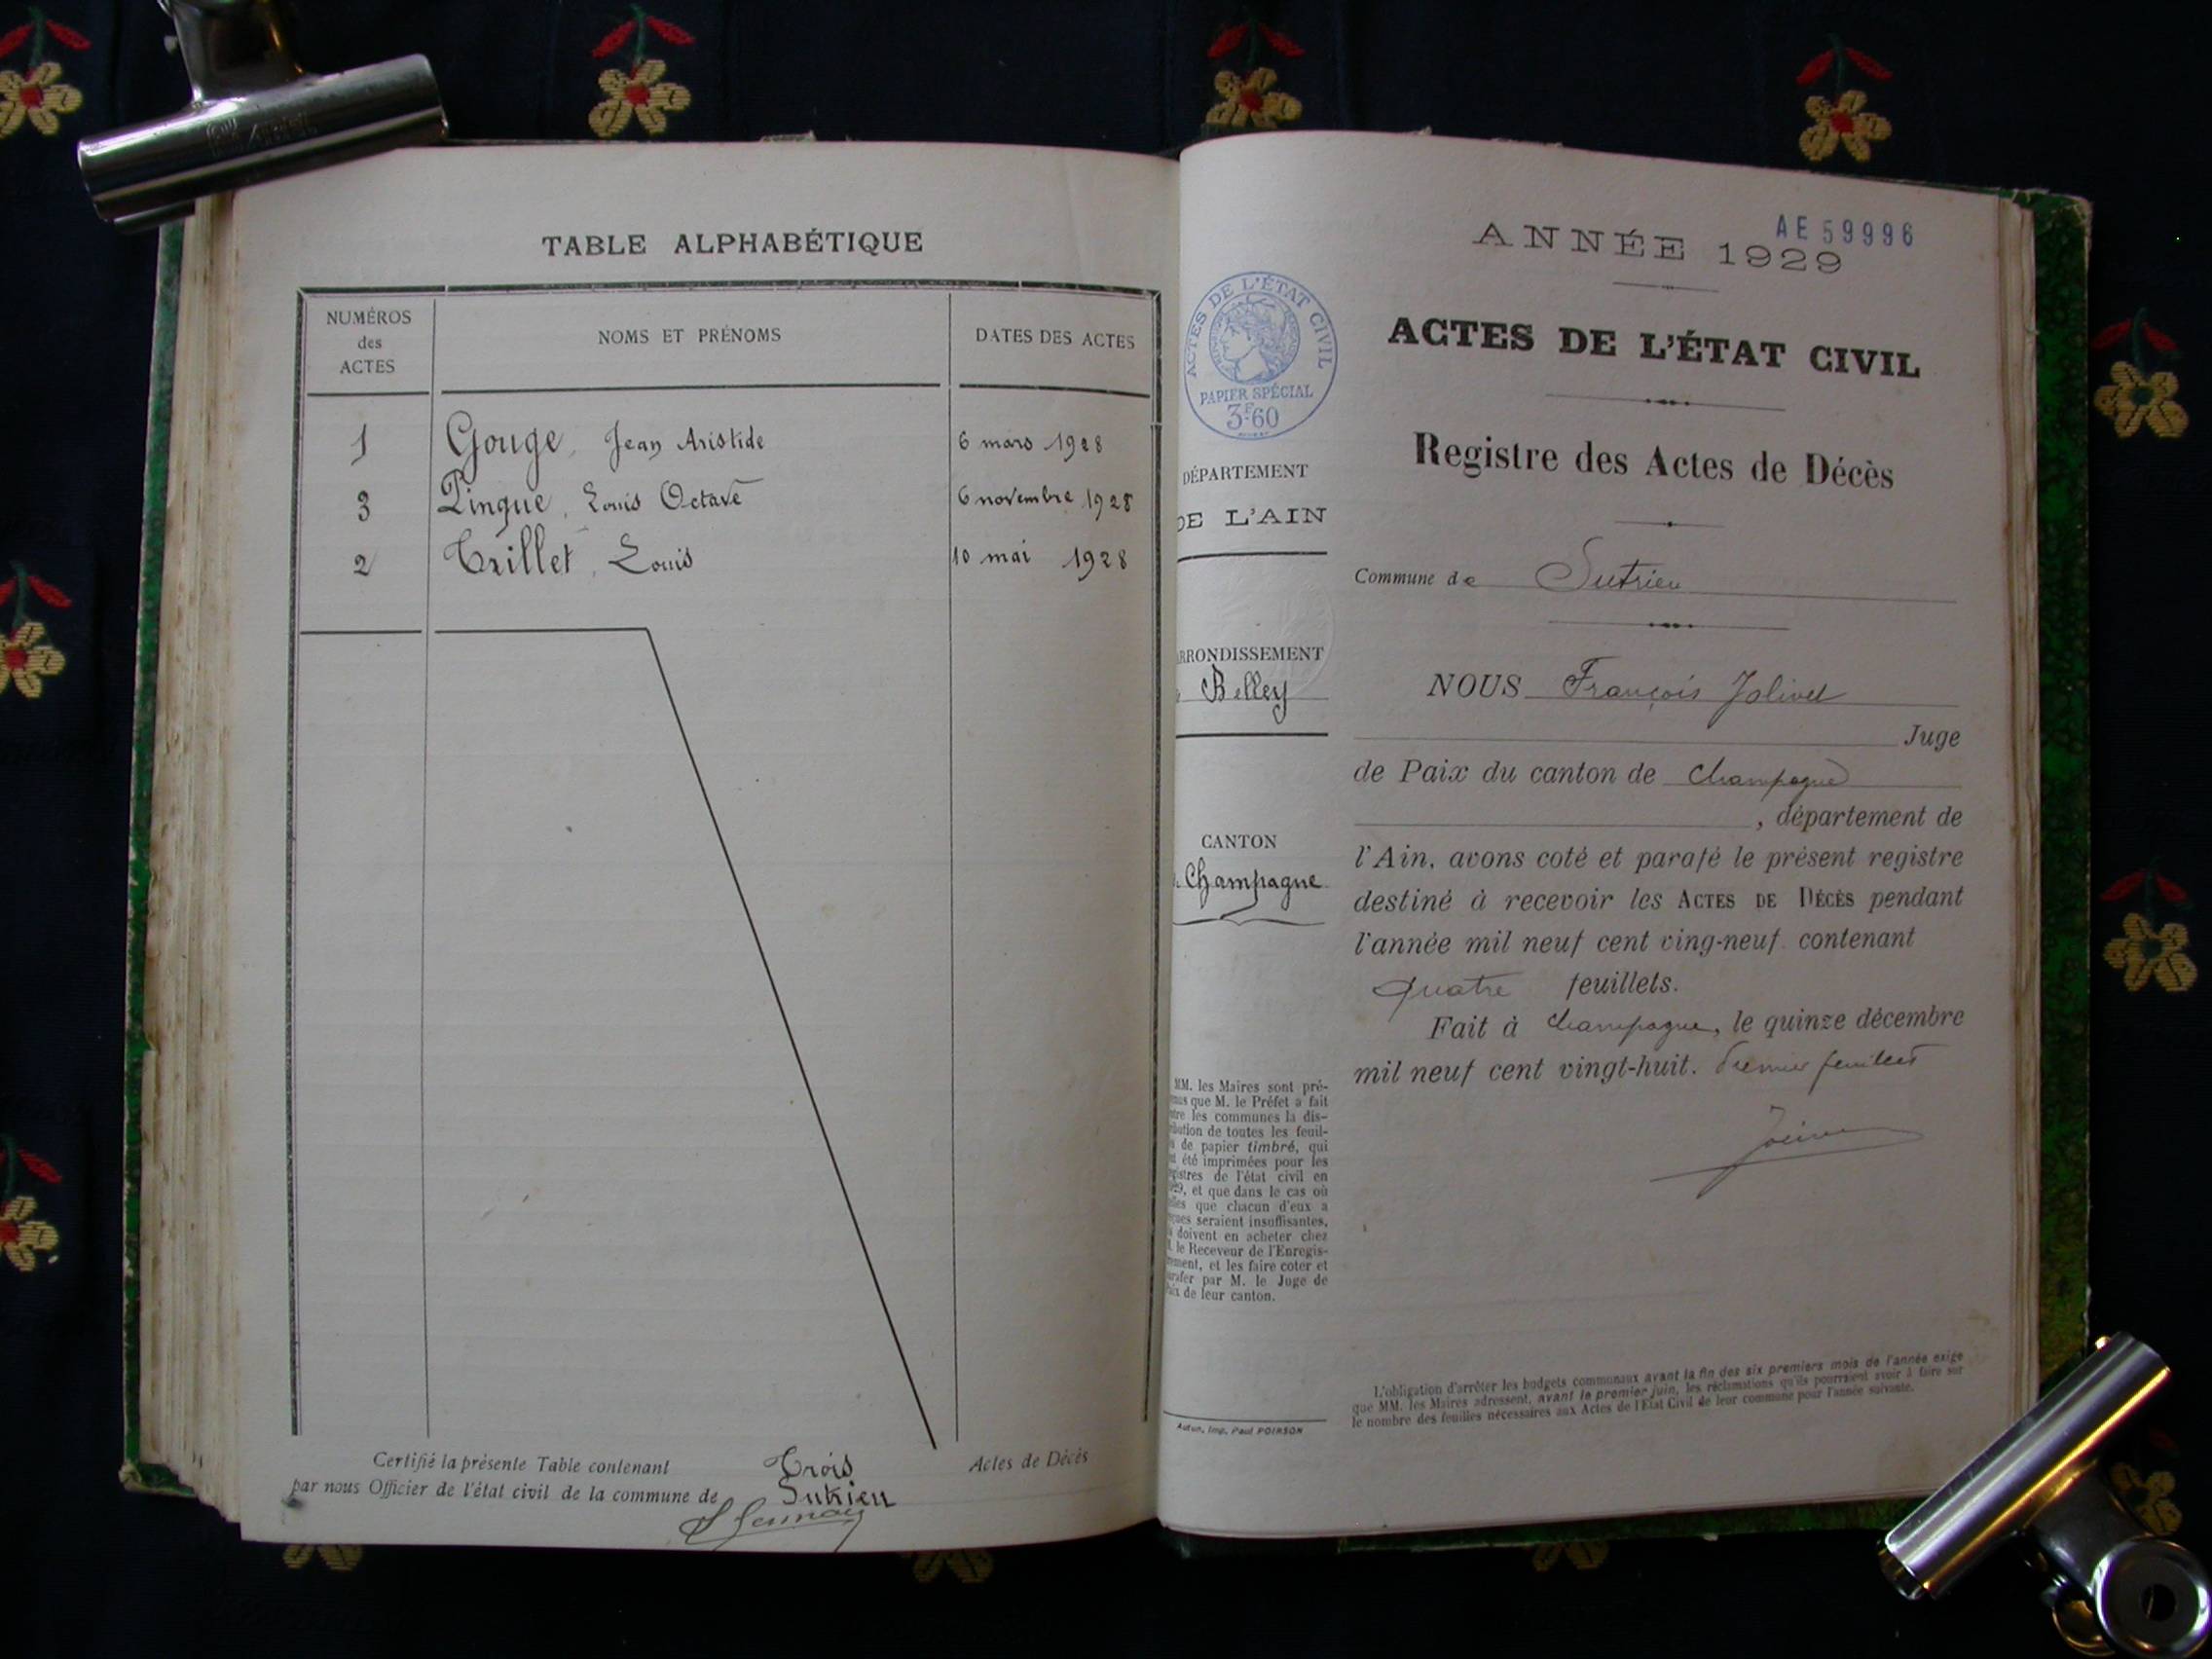 TABLE ALPHABÉTIQUE
NUMÉROS
des
ACTES
NOMS ET PRÉNOMS
DATES DES ACTES
1 Gouge, Jean Aristide 6 mars 1928
3 Pingue, Louis Octave 6 novembre 1928
2 Trillet, Louis 10 mai 1928
Certifié la présente Table contenant Trois Actes de Décès
par nous Officier de l'état civil de la commune de Sutrieu
AE 59996
ANNÉE 1929
ACTES DE L'ÉTAT CIVIL
PAPIER SPÉCIAL
3F60
DÉPARTEMENT
DE L'AIN
ARRONDISSEMENT
Belley
CANTON
Champagne
MM. les Maires sont pré-
nus que M. le Préfet a fait
tre les communes la dis-
ibution de toutes les feuil-
s de papier timbré, qui
nt été imprimées pour les
gistres de l'état civil en
929, et que dans le cas où
elles que chacun d'eux a
çues seraient insuffisantes,
s doivent en acheter chez
. le Receveur de l'Enregis-
rement, et les faire coter et
arafer par M. le Juge de
aix de leur canton.
Autun, Imp. Paul POIRSON
ACTES DE L'ÉTAT CIVIL
Registre des Actes de Décès
Commune de Sutrieu
NOUS François Jolivet
Juge
de Paix du canton de Champagne
, département de
l'Ain, avons coté et parafé le présent registre
destiné à recevoir les ACTES DE DÉCÈS pendant
l'année mil neuf cent ving-neuf contenant
quatre feuillets.
Fait à Champagne, le quinze décembre
mil neuf cent vingt-huit. Premier feuillet
L'obligation d'arrêter les budgets communaux avant la fin des six premiers mois de l'année exige
que MM. les Maires adressent, avant le premier juin, les réclamations qu'ils pourraient avoir à faire sur
le nombre des feuilles nécessaires aux Actes de l'Etat Civil de leur commune pour l'année suivante.